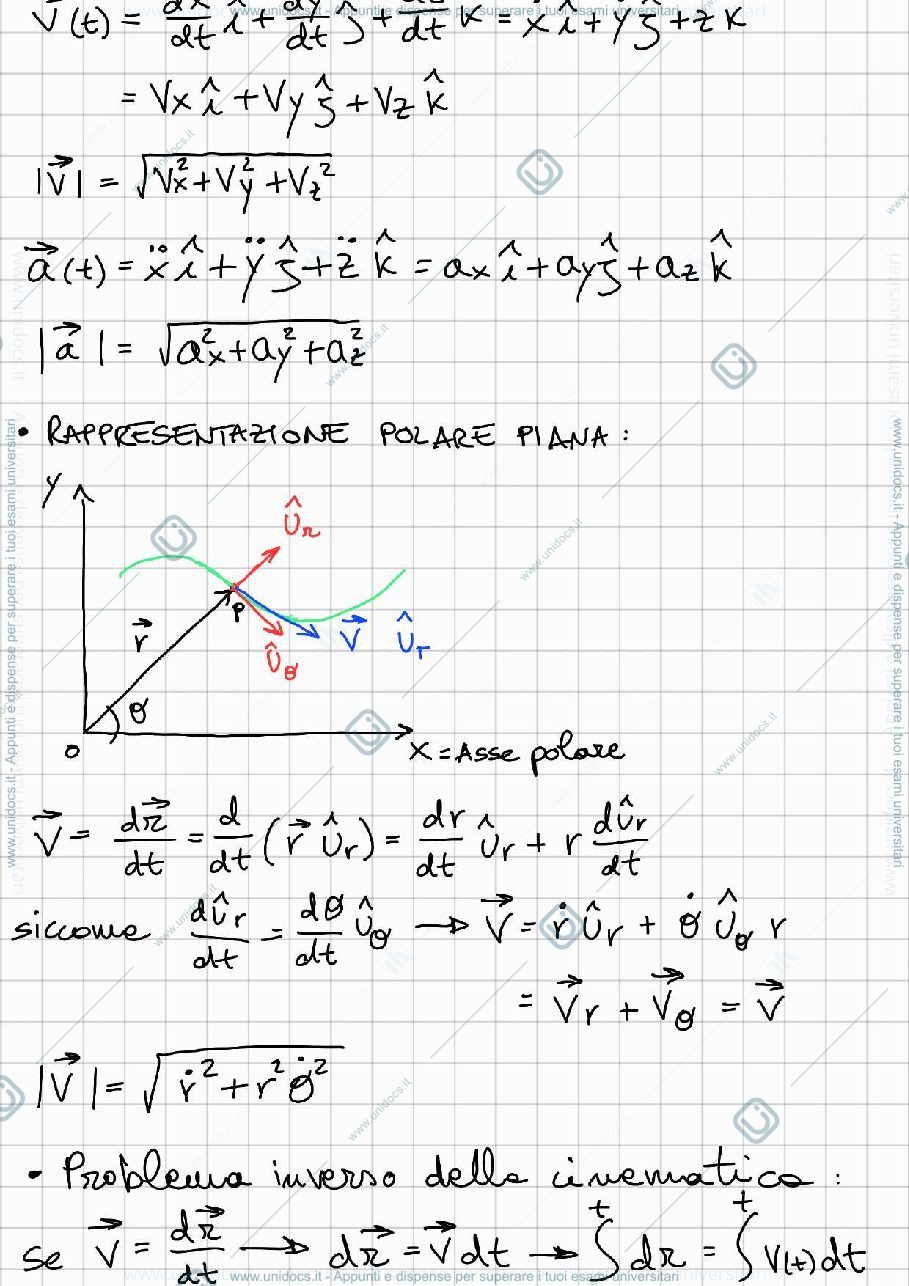 V⃗(t) = dx/dt î + dy/dt ĵ + dz/dt k̂ = ẋ î + ẏ ĵ + ż k̂
= Vx î + Vy ĵ + Vz k̂
|V⃗| = √(Vx² + Vy² + Vz²)
a⃗(t) = ẍ î + ÿ ĵ + z̈ k̂ = ax î + ay ĵ + az k̂
|a⃗| = √(ax² + ay² + az²)
• RAPPRESENTAZIONE POLARE PIANA :
y
Ûr
P
r⃗
V⃗ Ûτ
Ûθ
θ
O
X = Asse polare
V⃗ = dr⃗/dt = d/dt (r⃗ Ûr) = dr/dt Ûr + r dÛr/dt
siccome dÛr/dt = dθ/dt Ûθ → V⃗ = ṙ Ûr + θ̇ Ûθ r
= V⃗r + V⃗θ = V⃗
|V⃗| = √(ṙ² + r² θ̇²)
• Problema inverso della cinematica :
se V⃗ = dr⃗/dt → dr⃗ = V⃗ dt → ∫ᵗ dr = ∫ᵗ V(t) dt
www.unidocs.it - Appunti e dispense per superare i tuoi esami universitari